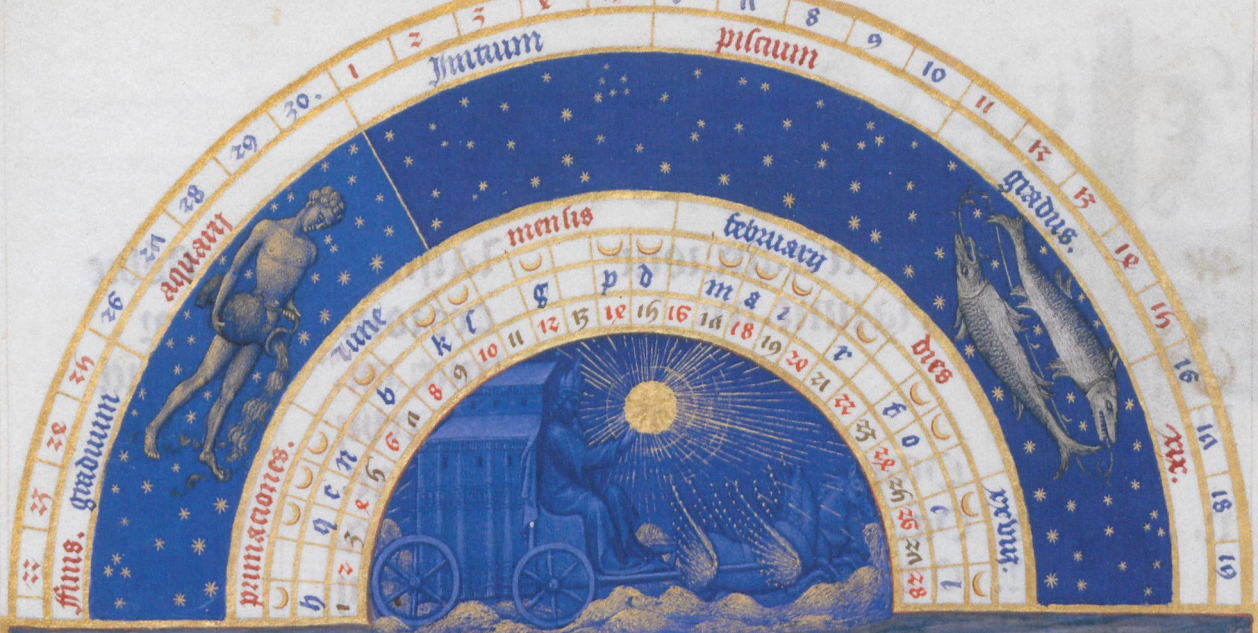 22 23 24 25 26 27 28 29 30. 1 2 3 8 9 10 11 12 13 14 15 16 17 18 19
finis. graduum aquarij Initium piscium gradus. xix.
primaciones. lune mensis february dies xxix
b q n b k g p d m a r f o
1 2 3 4 5 6 7 8 9 10 11 12 13 14 15 16 17 18 19 20 21 22 23 24 25 26 27 28